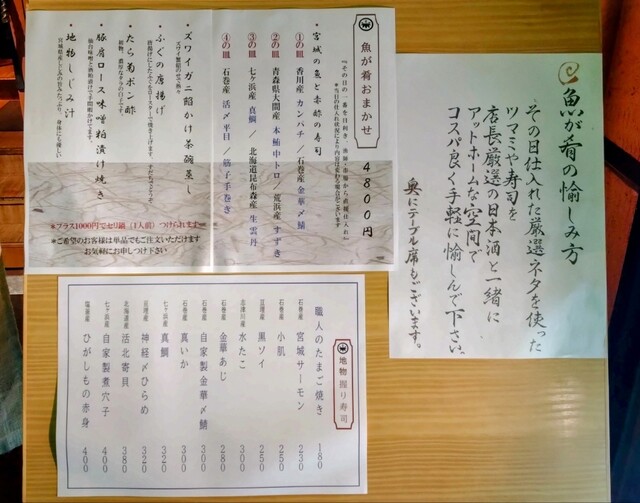 魚が肴の愉しみ方
その日仕入れた厳選ネタを使った
ツマミや寿司を
店長厳選の日本酒と一緒に
アットホームな空間で
コスパ良く手軽に愉しんで下さい。
奥にテーブル席もございます。
魚が肴おまかせ
4800円
・宮城の魚と赤酢の寿司
①の皿 香川産 カンパチ / 石巻産 金華〆鯖
②の皿 青森県大間産 本鮪中トロ / 荒浜産 すずき
③の皿 七ヶ浜産 真鯛 / 北海道昆布森産 生雲丹
④の皿 石巻産 活〆平目 / 筋子手巻き
・ズワイガニ餡かけ茶碗蒸し
・ふぐの唐揚げ
・たら菊ポン酢
・豚肩ロース味噌粕漬け焼き
・地物しじみ汁
*プラス1000円でセリ鍋(1人前)つけられます
*ご希望のお客様は単品でもご注文いただけます
お気軽にお申しつけ下さい
地物 握り寿司
職人のたまご焼き 180
石巻産 宮城サーモン 230
石巻産 小肌 250
亘理産 黒ソイ 250
志津川産 水たこ 300
石巻産 金華あじ 280
石巻産 自家製金華〆鯖 300
石巻産 真いか 300
七ヶ浜産 真鯛 320
亘理産 神経〆ひらめ 320
北海道産 活北寄貝 380
七ヶ浜産 自家製煮穴子 400
塩釜産 ひがしもの赤身 400